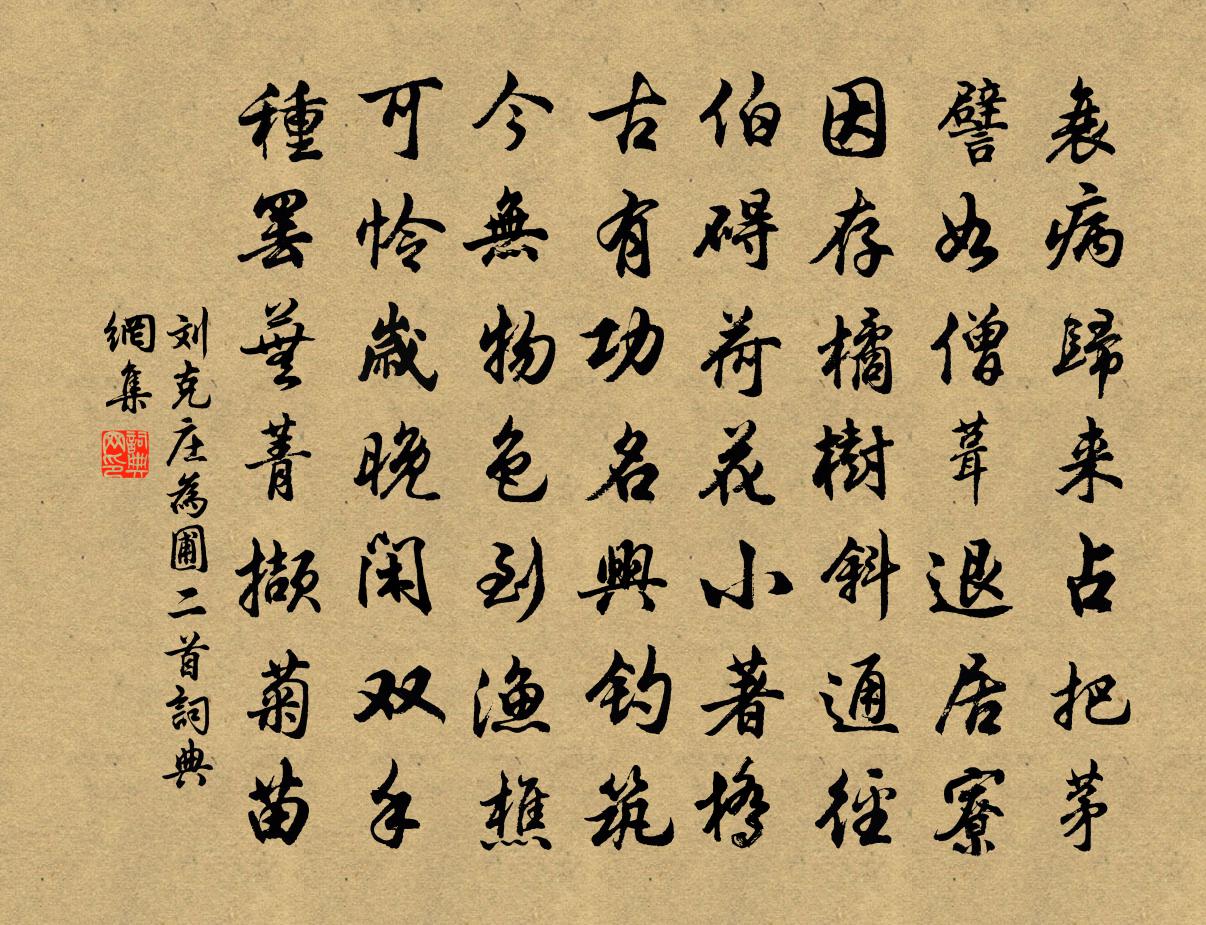 衰病歸来占把茅
譬如僧葺退居寮
因存橘樹斜通徑
伯碍荷花小著橋
古有功名興釣筑
今無物色到漁樵
可怜歲晚閑双手
種罢蕪菁擷菊苗
刘克庄為圃二首詞典
網集
詞典网印